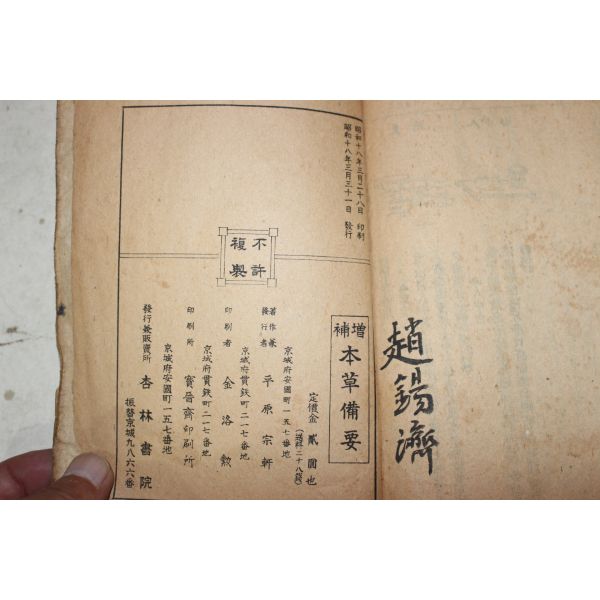 趙錫濟
昭和十八年三月二十八日 印刷
昭和十八年三月三十一日 發行
不許
複製
增補 本草備要
定價金 貳圓也
(送料二十八錢)
京城府安國町一五七番地
著作兼
發行者 平原宗軒
京城府貫鉄町二一七番地
印刷者 金洛勲
京城府貫鉄町二一七番地
印刷所 寶晉齋印刷所
京城府安國町一五七番地
發行兼販賣所 杏林書院
振替京城九八六六番